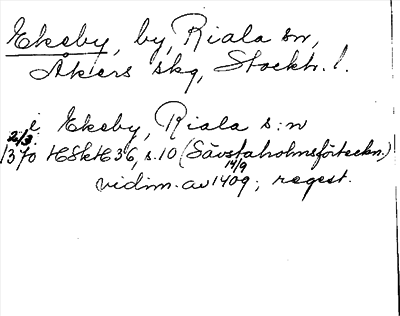 Ekeby, by, Riala sn,
Åkers skg, Stockh. l.
i Ekeby, Riala s:n
2/3 1370 HSkH 36, s. 10 (Sävstaholmsförteckn.)
vidim. av 14/9 1409; regest.